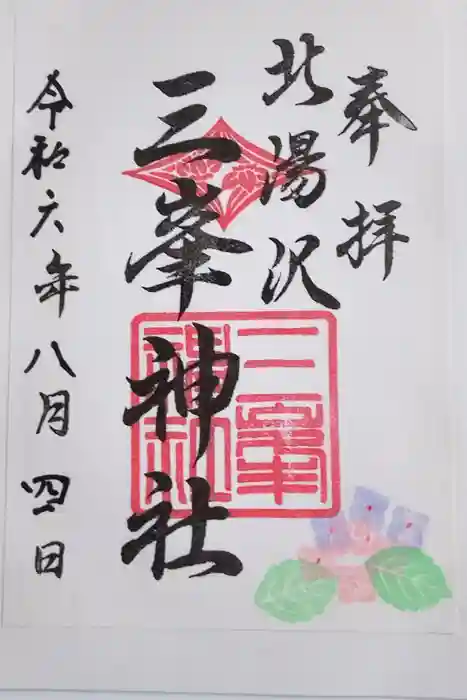 奉拝
北湯沢
三峯神社
三峯
神社
令和六年八月四日